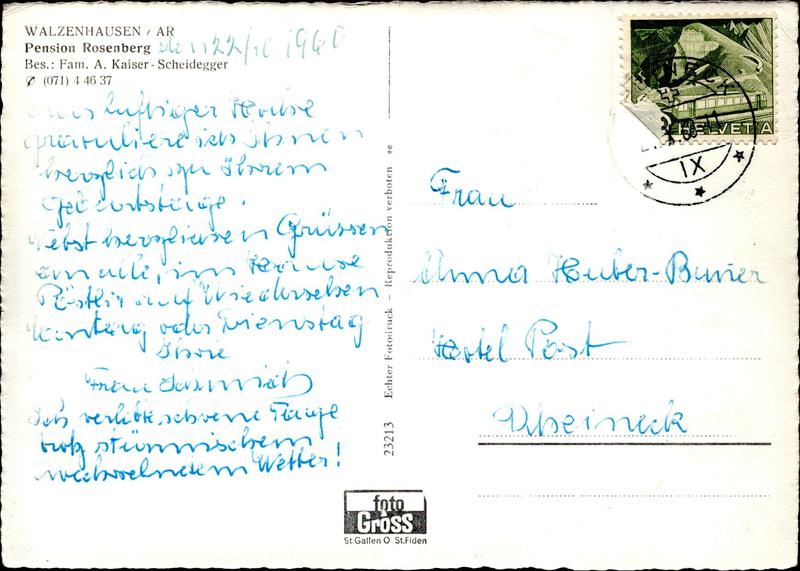 WALZENHAUSEN / AR
Pension Rosenberg den 22/10 1960
Bes.: Fam. A. Kaiser-Scheidegger
✆ (071) 4 46 37
Aus luftiger Höhe
gratuliere ich Ihnen
herzlich zu Ihrem
Geburtstage.
Nebst herzlichen Grüssen
an alle, im Hause
Pöstli auf Wiedersehen
Montag oder Dienstag
Ihre
Frau Schmid
Ich verlebte schöne Tage
trotz stürmischem
wechselndem Wetter!
Echter Fotodruck - Reproduktion verboten
23213
foto
Gross
St.Gallen O St.Fiden
HELVETIA
IX
Frau
Anna Huber-Bunier
Hotel Post
Rheineck